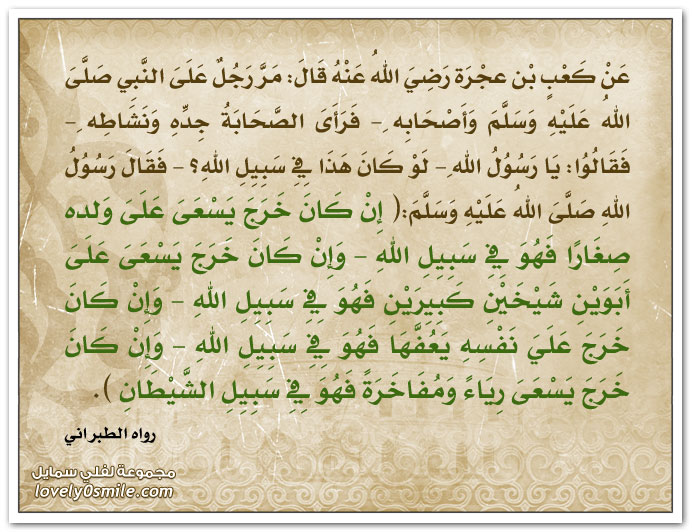 عَنْ كَعْبٍ بْن عجْرَة رَضِيَ اللهُ عَنْهُ قَالَ: مَرَّ رَجُلٌ عَلَىَ النَّبي صَلَّىَ
اللهُ عَلَيْهِ وَسَلَّمَ وَأَصْحَابِه ِ- فَرَأَىَ الصَّحَابَةُ جِدِّهِ وَنَشَاطِه ِ-
فَقَالُوُا: يَا رَسُوُلُ اللهِ - لَوْ كَانَ هَذَا فِيْ سَبِيِلِ اللهِ؟ - فَقَالَ رَسُوُلُ
اللهِ صَلَّىَ اللهُ عَلَيْهِ وَسَلَّمَ:( إِنْ كَانَ خَرَجَ يَسْعَىَ عَلَىَ وَلَده
صِغَارًا فَهُوَ فِيْ سَبِيِلِ اللهِ - وَإِنْ كَانَ خَرَجَ يَسْعَىَ عَلَىَ
أَبَوَيْنِ شَيْخَيْنِ كَبِيرَيْنِ فَهُوَ فِيْ سَبِيِلِ اللهِ - وَإِنْ كَانَ
خَرَجَ عَلَي نَفْسهِ يَعُفَّهَا فَهُوَ فِيْ سَبِيِلِ اللهِ - وَإِنْ كَانَ
خَرَجَ يَسْعَىَ رِيَاءً وَمُفَاخَرَةً فَهُوَ فِيْ سَبِيِلِ الشَّيْطَانِ ).
رواه الطبراني
مجموعة لفلي سمايل
lovely0smile.com